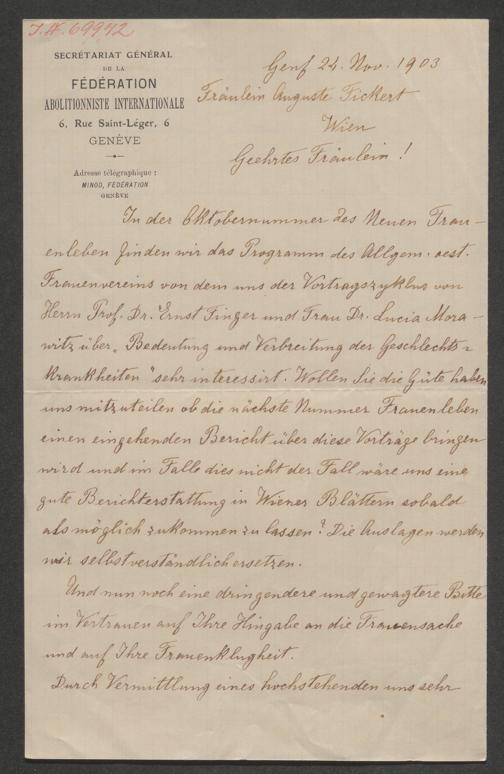 I.N. 69942
SECRÉTARIAT GÉNÉRAL
DE LA
FÉDÉRATION
ABOLITIONNISTE INTERNATIONALE
6, Rue Saint-Léger, 6
GENÈVE
Adresse télégraphique :
MINOD, FÉDÉRATION
GENÈVE
Genf 24. Nov. 1903
Fräulein Auguste Fickert
Wien
Geehrtes Fräulein!
In der Oktobernummer des Neuen Frau-
enleben finden wir das Programm des Allgem. oest.
Frauenvereins von dem uns der Vortragszyklus von
Herrn Prof. Dr. Ernst Finger und Frau Dr. Lucia Mora-
witz über „Bedeutung und Verbreitung der Geschlechts=
krankheiten" sehr interessirt. Wollen Sie die Güte haben
uns mitzuteilen ob die nächste Nummer Frauenleben
einen eingehenden Bericht über diese Vorträge bringen
wird und im Falle dies nicht der Fall wäre uns eine
gute Berichterstattung in Wiener Blättern sobald
als möglich zukommen zu lassen? Die Auslagen werden
wir selbstverständlich ersetzen.
Und nun noch eine dringendere und gewagtere Bitte
im Vertrauen auf Ihre Hingabe an die Frauensache
und auf Ihre Frauenklugheit.
Durch Vermittlung eines hochstehenden uns sehr